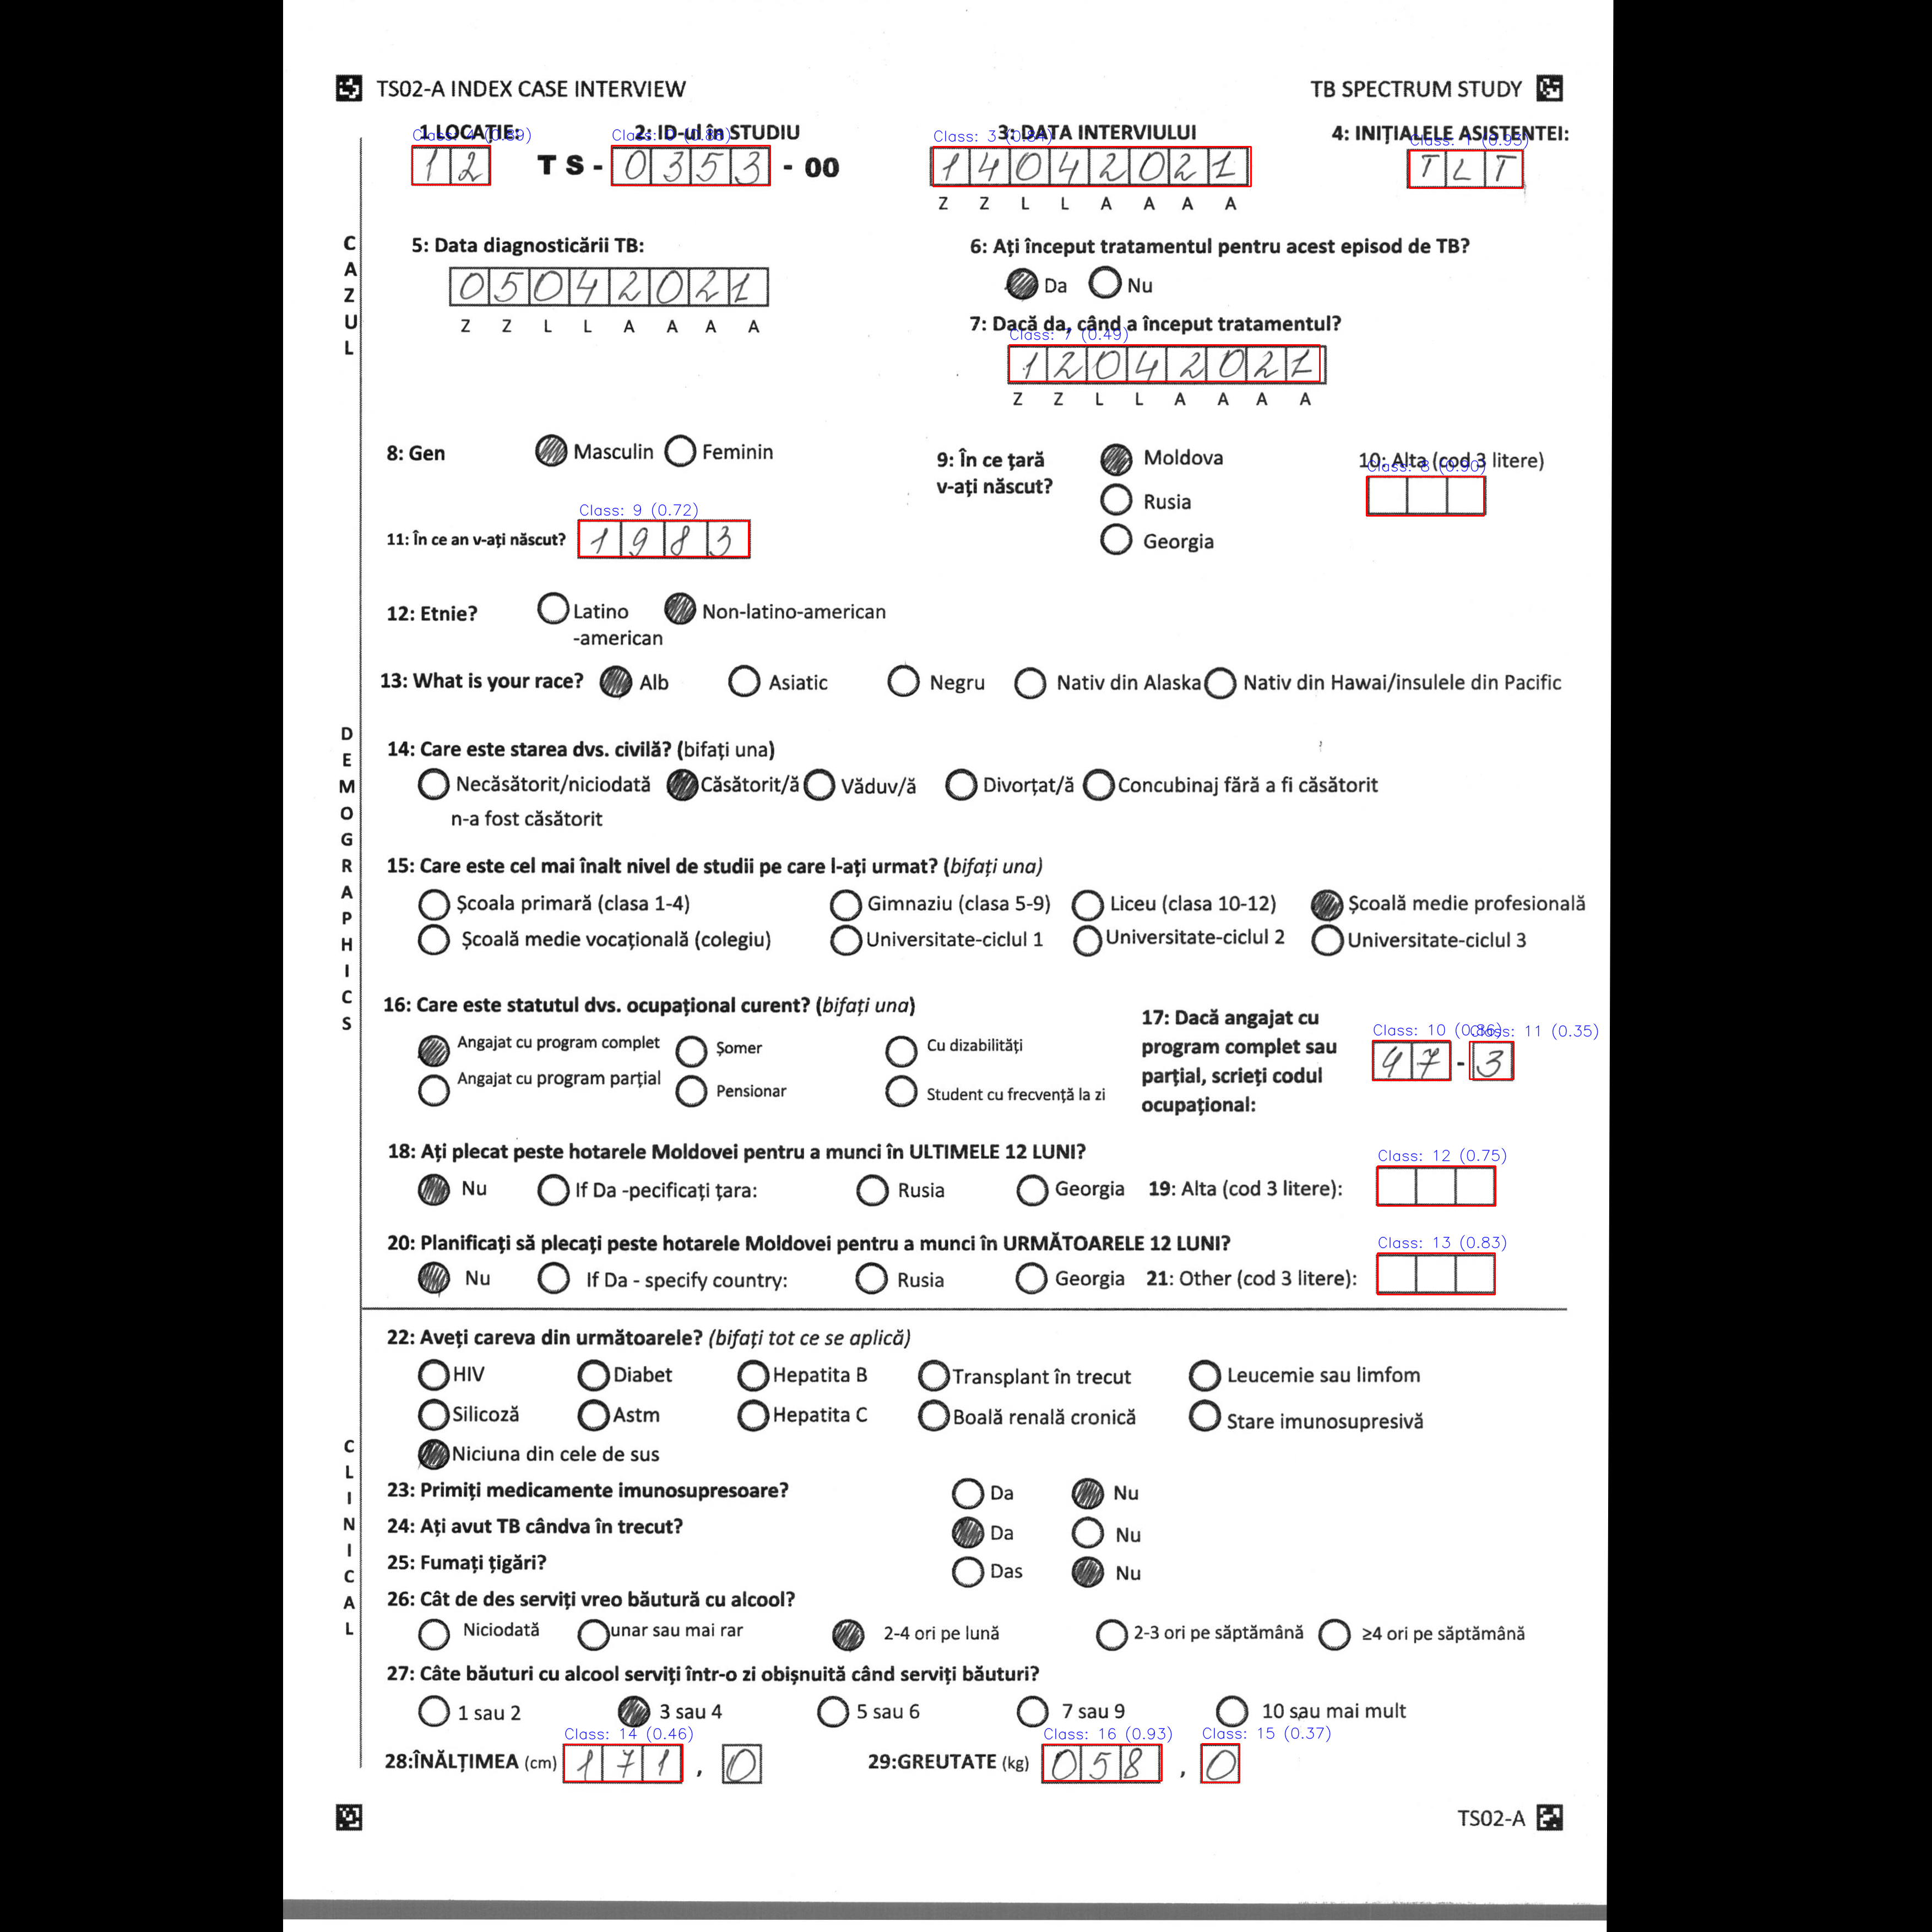 TS02-A INDEX CASE INTERVIEW TB SPECTRUM STUDY
1 LOCAȚIE: 2: ID-ul în STUDIU 3: DATA INTERVIULUI 4: INIȚIALELE ASISTENTEI:
Class: 4 (0.89) Class: 3 (0.84) Class: 1 (0.93)
12 TS- 0353 - 00 14042021 TLT
Z Z L L A A A A
CAZUL
5: Data diagnosticării TB: 6: Ați început tratamentul pentru acest episod de TB?
05042021 Da Nu
Z Z L L A A A A 7: Dacă da, când a început tratamentul?
Class: 7 (0.49)
12042021
Z Z L L A A A A
8: Gen Masculin Feminin 9: În ce țară v-ați născut? Moldova 10: Alta (cod 3 litere)
Class: 8 (0.90)
Rusia
Class: 9 (0.72)
11: În ce an v-ați născut? 1983 Georgia
12: Etnie? Latino -american Non-latino-american
13: What is your race? Alb Asiatic Negru Nativ din Alaska Nativ din Hawai/insulele din Pacific
DEMOGRAPHICS
14: Care este starea dvs. civilă? (bifați una)
Necăsătorit/niciodată Căsătorit/ă Văduv/ă Divorțat/ă Concubinaj fără a fi căsătorit
n-a fost căsătorit
15: Care este cel mai înalt nivel de studii pe care l-ați urmat? (bifați una)
Școala primară (clasa 1-4) Gimnaziu (clasa 5-9) Liceu (clasa 10-12) Școală medie profesională
Școală medie vocațională (colegiu) Universitate-ciclul 1 Universitate-ciclul 2 Universitate-ciclul 3
16: Care este statutul dvs. ocupațional curent? (bifați una)
Angajat cu program complet Șomer Cu dizabilități
Angajat cu program parțial Pensionar Student cu frecvență la zi
17: Dacă angajat cu
program complet sau
parțial, scrieți codul
ocupațional:
Class: 10 (0.86) Class: 11 (0.35)
47 - 3
18: Ați plecat peste hotarele Moldovei pentru a munci în ULTIMELE 12 LUNI?
Class: 12 (0.75)
Nu If Da -pecificați țara: Rusia Georgia 19: Alta (cod 3 litere):
20: Planificați să plecați peste hotarele Moldovei pentru a munci în URMĂTOARELE 12 LUNI?
Class: 13 (0.83)
Nu If Da - specify country: Rusia Georgia 21: Other (cod 3 litere):
CLINICAL
22: Aveți careva din următoarele? (bifați tot ce se aplică)
HIV Diabet Hepatita B Transplant în trecut Leucemie sau limfom
Silicoză Astm Hepatita C Boală renală cronică Stare imunosupresivă
Niciuna din cele de sus
23: Primiți medicamente imunosupresoare? Da Nu
24: Ați avut TB cândva în trecut? Da Nu
25: Fumați țigări? Das Nu
26: Cât de des serviți vreo băutură cu alcool?
Niciodată unar sau mai rar 2-4 ori pe lună 2-3 ori pe săptămână ≥4 ori pe săptămână
27: Câte băuturi cu alcool serviți într-o zi obișnuită când serviți băuturi?
1 sau 2 3 sau 4 5 sau 6 7 sau 9 10 sau mai mult
Class: 14 (0.46) Class: 16 (0.93) Class: 15 (0.37)
28:ÎNĂLȚIMEA (cm) 171 , 0 29:GREUTATE (kg) 058 , 0
TS02-A